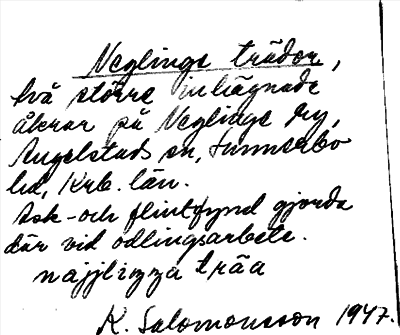 Neglinge trädor,
två större inhägnade
åkrar på Neglinge äy,
Angelstads sn, Sunnerbo
hd, Krb. län.
Ask- och flintfynd gjorda
där vid odlingsarbete.
najjlizza träa
K. Salomonsson 1947.